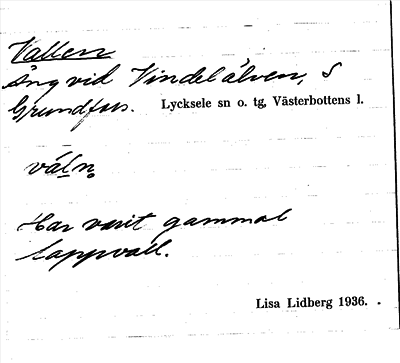 Vallen
Äng vid Vindelälven, S
Grundfors. Lycksele sn o. tg, Västerbottens l.
váln
Har varit gammal
lappvall.
Lisa Lidberg 1936.